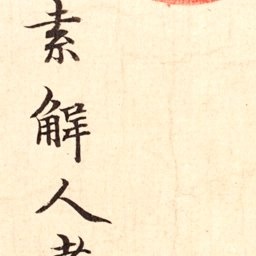 素解人